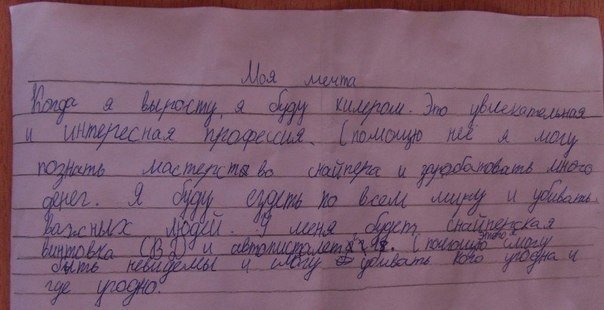 Моя мечта
Когда я выросту, я буду килером. Это увлекательная
и интересная профессия. С помощю неё я могу
познать мастерство снайпера и зурабатовать много
денег. Я буду ездеть по всем миру и убивать
важных людей. У меня будет снайперская
винтовка (ВЗ) и автописталет. С помощю этого смогу
быть невидемы и смогу убивать кого угодна и
где угодно.